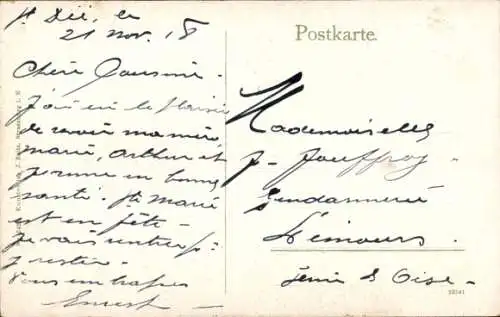 St Dié, le
21 Nov. 18
Chère Cousine.
J'ai eu le plaisir
de revoir ma mère,
marie, Arthur et
en bonne
santé. Ste Marie
est en fête.
je vais rentrer
Vous embrasse
Ernest
Postkarte.
Mademoiselle
J. Jouffroy
Gendarmerie
Némours
Seine & Oise